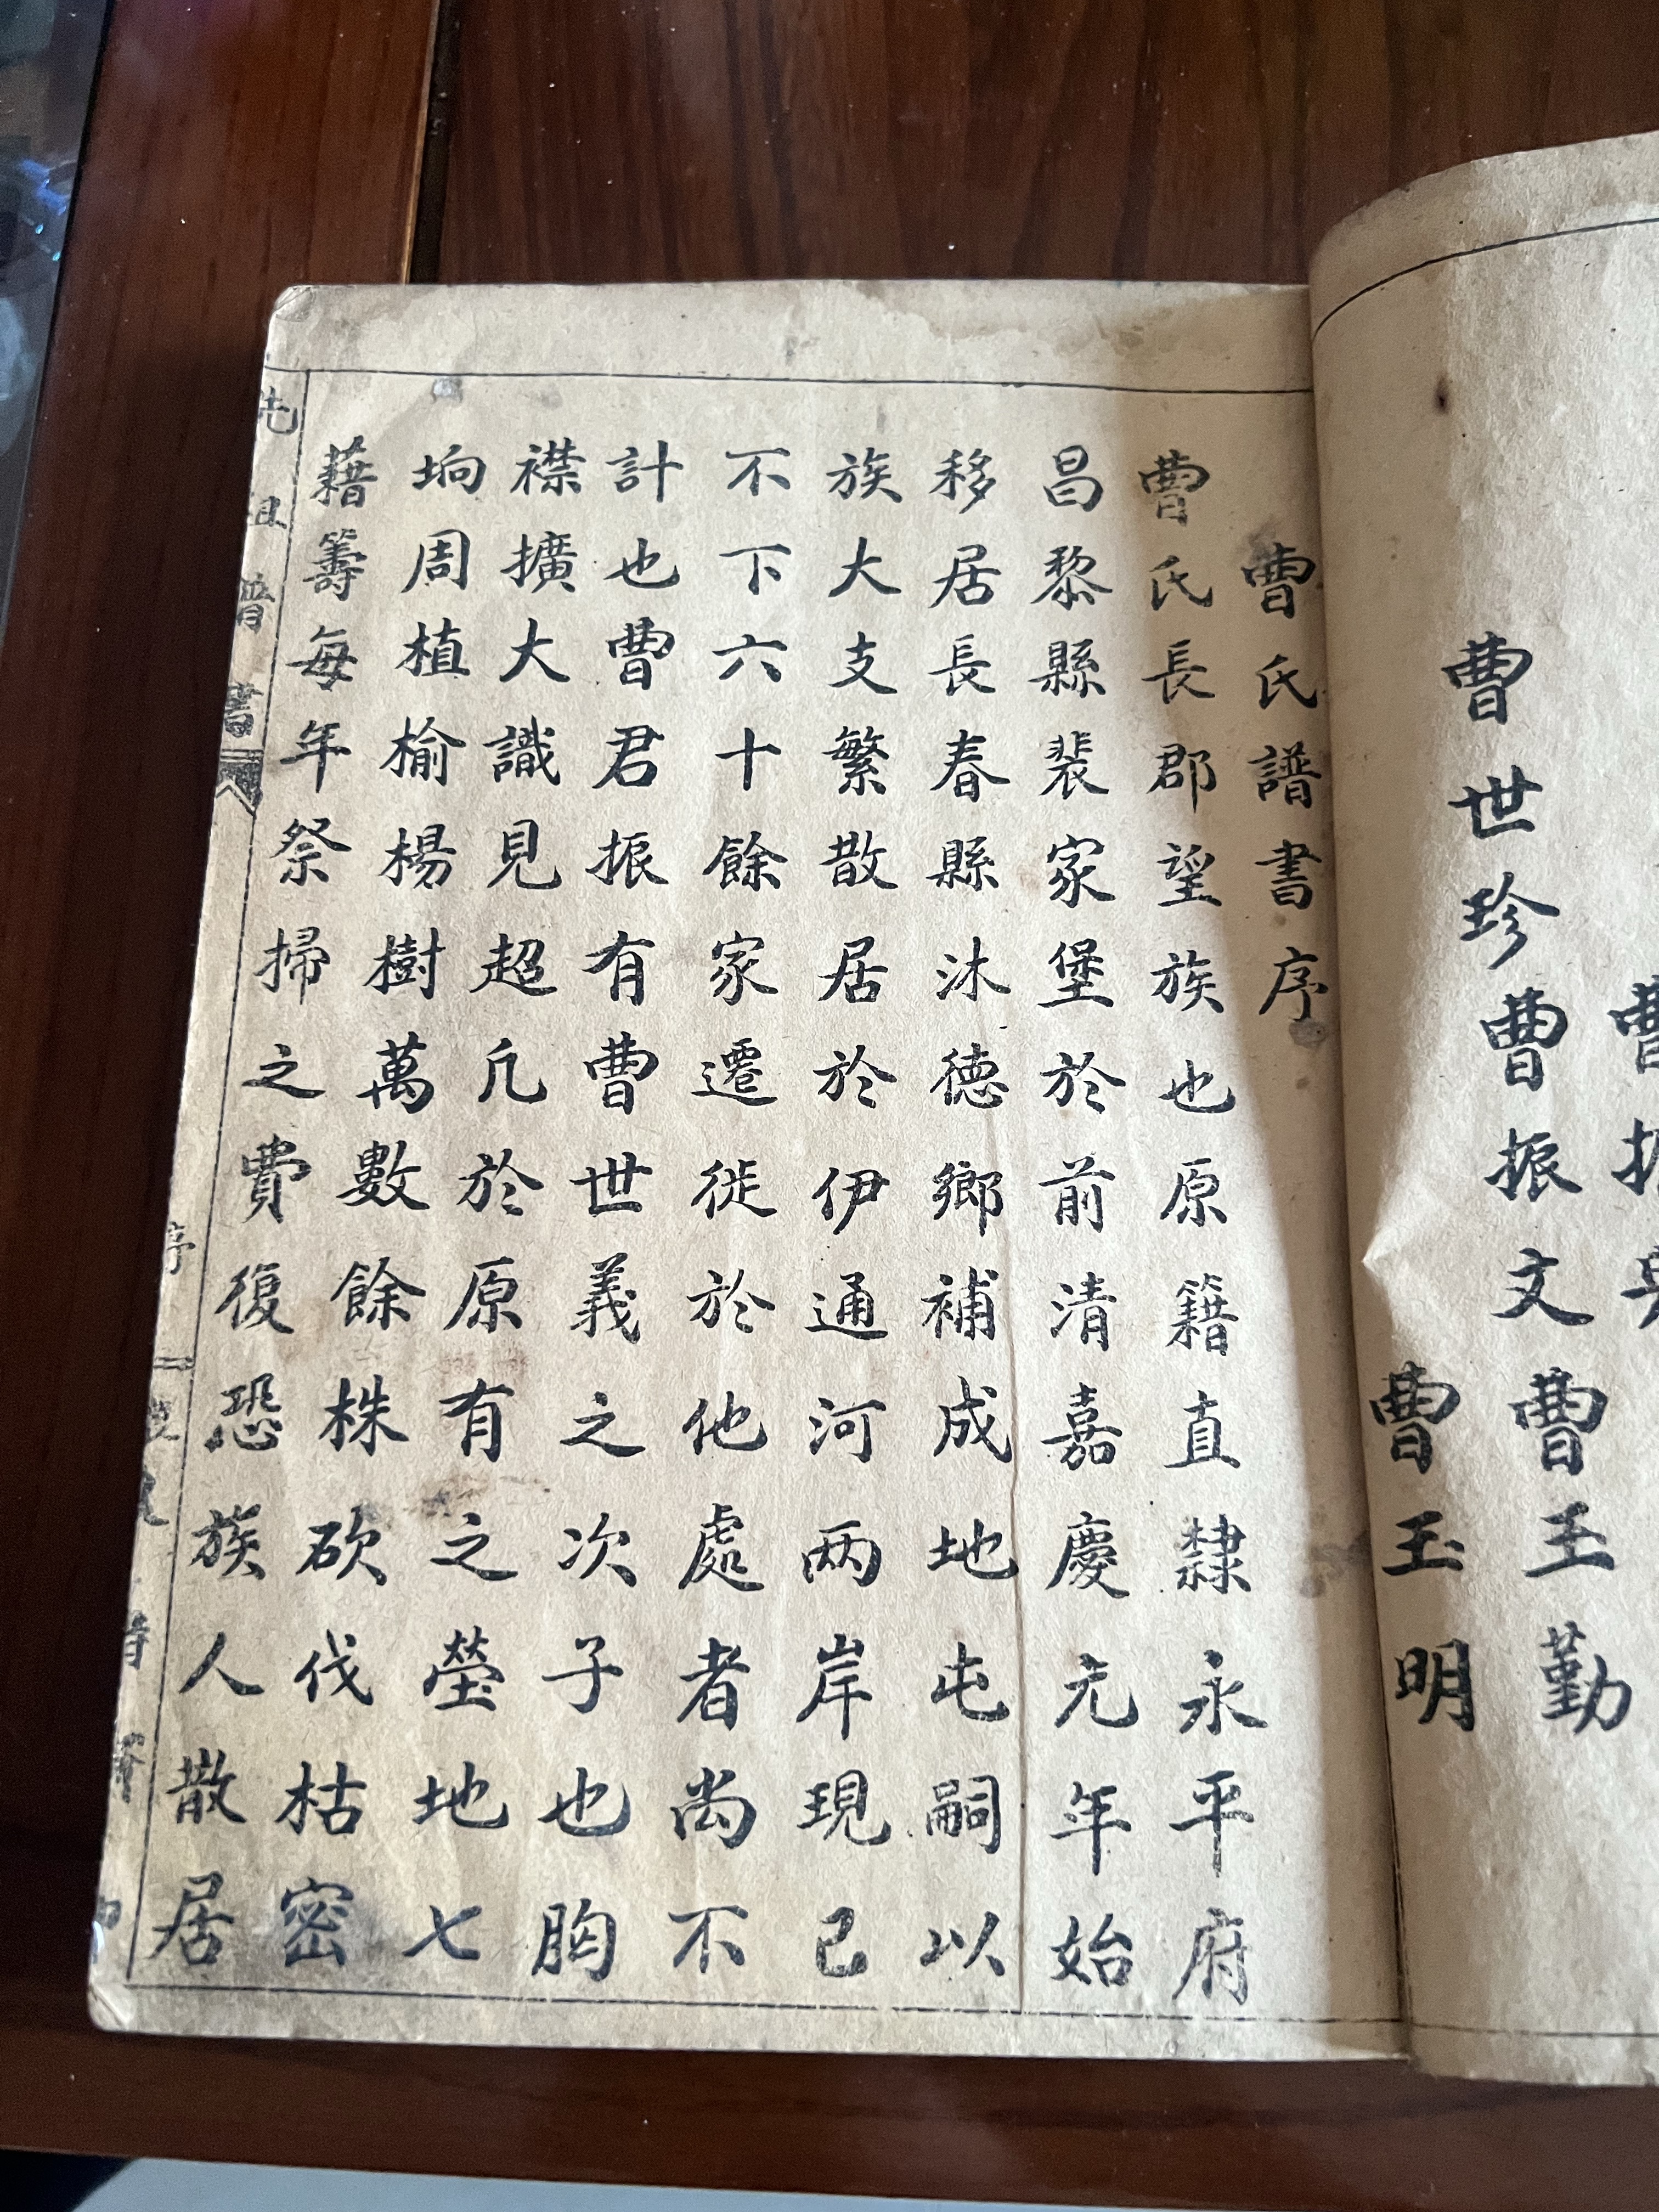 曹世珍曹振文曹玉勤
曹玉明
曹氏譜書序
曹氏長郡望族也原籍直隸永平府
昌黎縣裴家堡於前清嘉慶元年始
移居長春縣沐德鄉補成地屯嗣以
族大支繁散居於伊通河两岸現已
不下六十餘家遷徙於他處者尚不
計也曹君振有曹世義之次子也胸
襟擴大識見超凢於原有之塋地七
垧周植榆楊樹萬數餘株砍伐枯密
藉籌每年祭掃之費復恐族人散居
先祖譜書